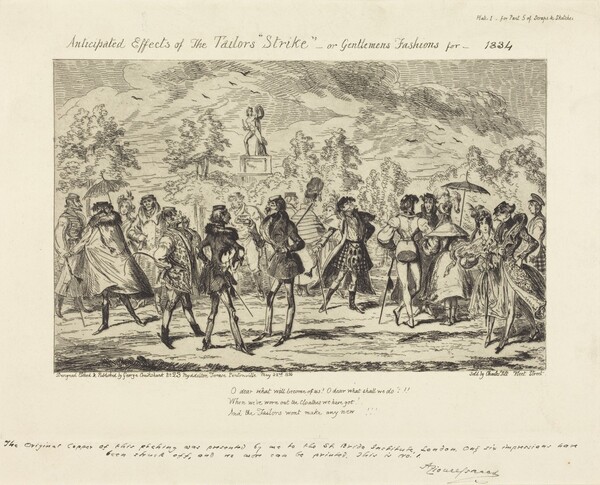 Plate 1 - for Part 5 of Scraps & Sketches
Anticipated Effects of The Tailors "Strike" - or Gentlemens Fashions for - 1834
Designed Etched & Published by George Cruikshank Myddelton Terrace Pentonville May 1834
Sold by Charles Tilt Fleet Street
O dear what will become of us? O dear what shall we do? !!
When we've worn out the Cloathes we have got!
And the Tailors wont make any new !!!
The Original Copper of this etching was presented by me to the St Bride Institute, London. Only six impressions have
been struck off, and no more can be printed. This is No